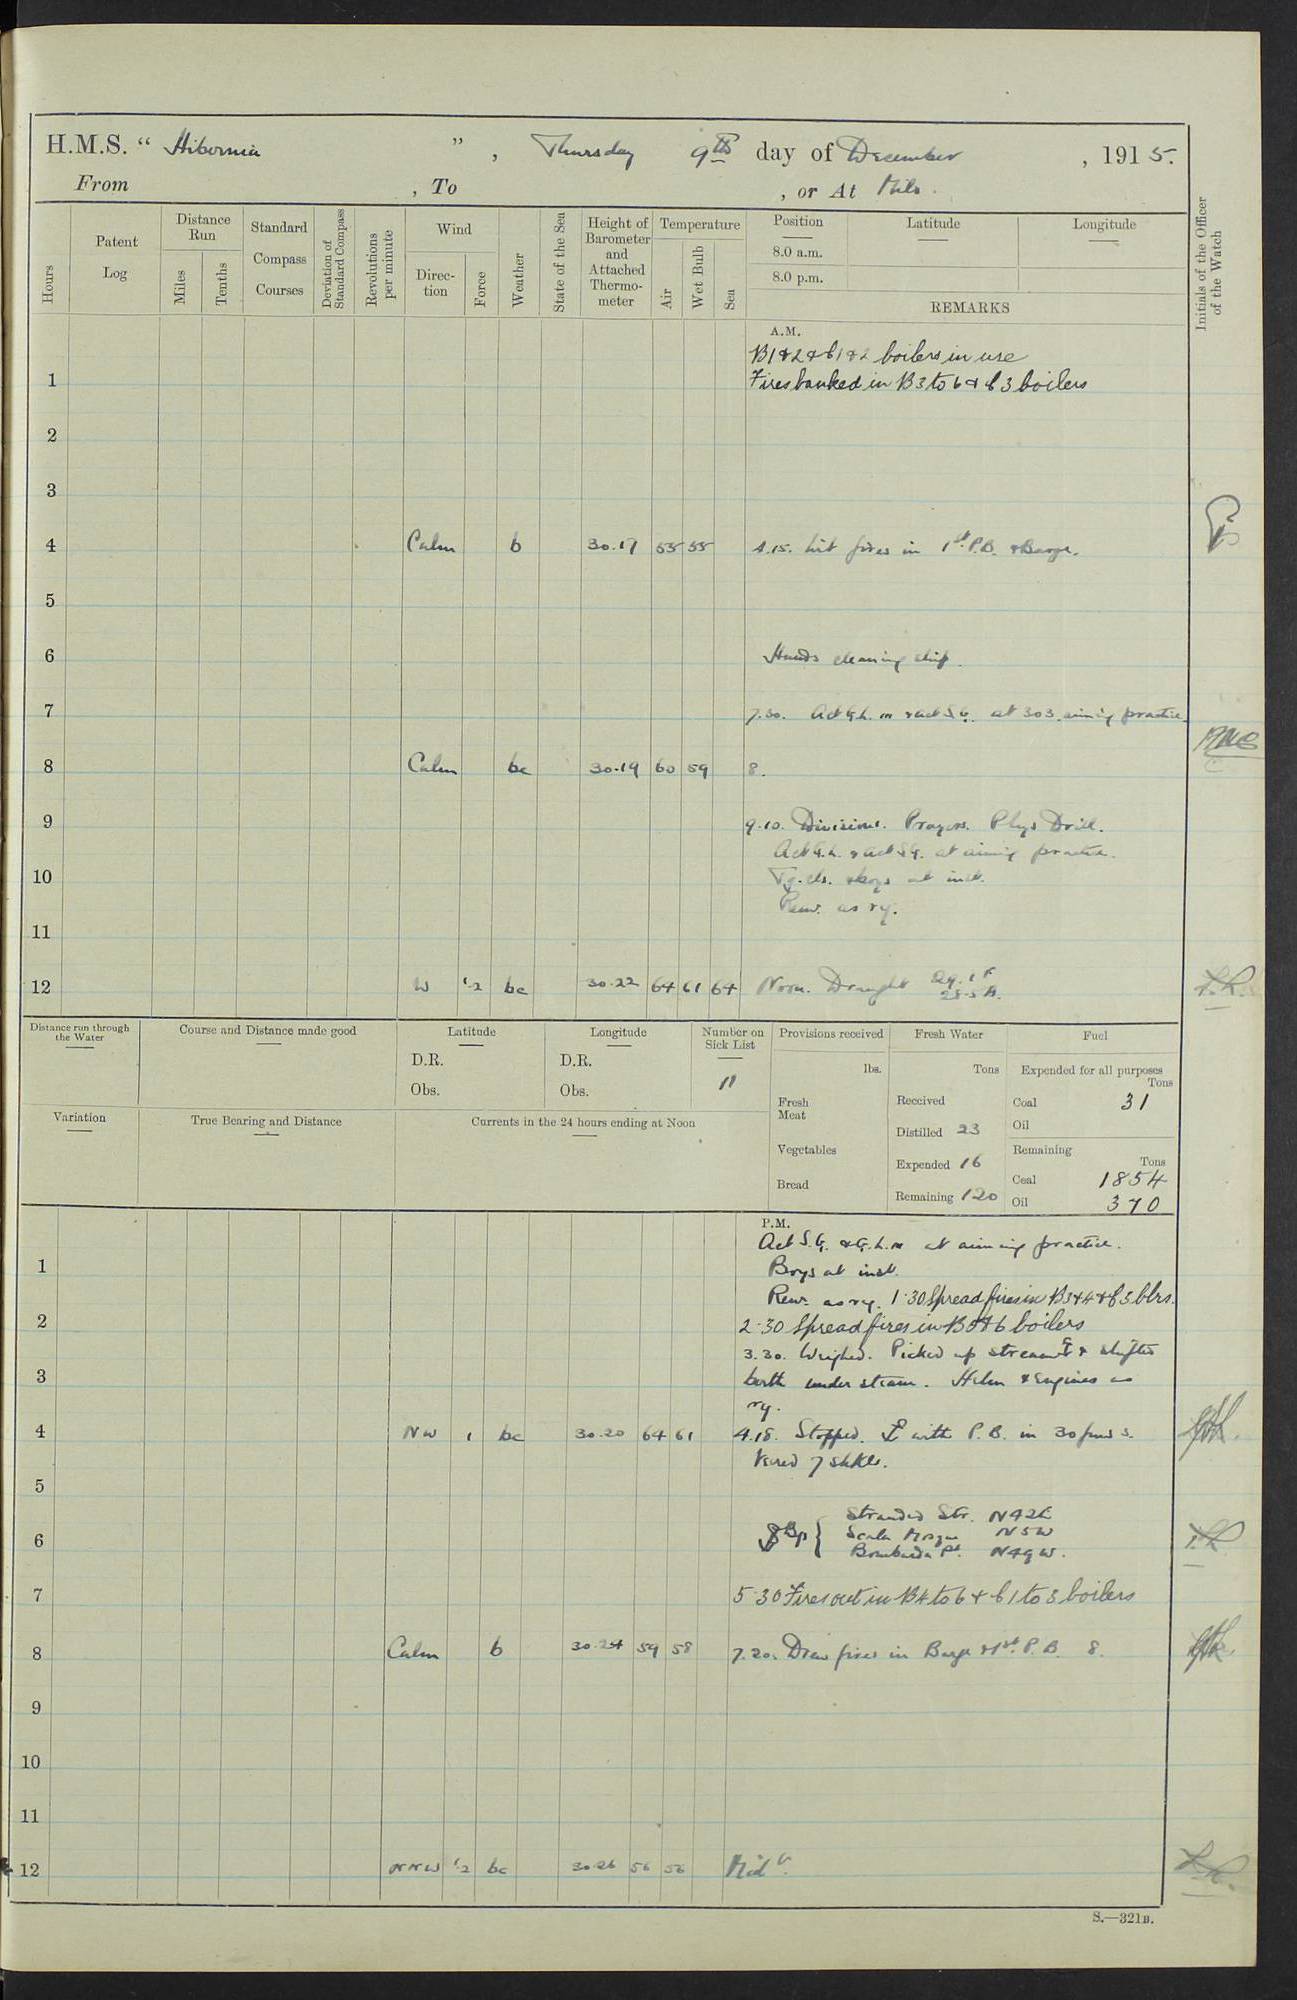 H.M.S. “ Hibernia ” , Thursday 9th day of December , 1915.
From , To , or At Milo.
Hours
Patent Log
Distance Run
Miles
Tenths
Standard Compass Courses
Deviation of Standard Compass
Revolutions per minute
Wind
Direc-tion
Force
Weather
State of the Sea
Height of Barometer and Attached Thermo-meter
Temperature
Air
Wet Bulb
Sea
Position Latitude Longitude
8.0 a.m.
8.0 p.m.
REMARKS
Initials of the Officer of the Watch
A.M.
B1&2 & C1&2 boilers in use
1 Fires banked in B3 to 6 & C3 boilers
2
3
4 Calm b 30.17 55 55 4.15. Lit fires in 1st P.B. & Barge.
5
6 Hands cleaning ship.
7 7.30. Act G.L. & act S.G. at 303 aiming practice.
8 Calm bc 30.19 60 59 8.
9 9.10. Divisions. Prayers. Phys Drill.
Act G.L. & act S.G. at aiming practice.
10 Tg. cls. & boys at inst.
Remr. as ry.
11
12 W 1-2 bc 30.22 64 61 64 Noon. Draught
Distance run through the Water
Course and Distance made good
Latitude
D.R.
Obs.
Longitude
D.R.
Obs.
Number on Sick List
11
Provisions received
lbs.
Fresh Meat
Vegetables
Bread
Fresh Water
Tons
Received
Distilled 23
Expended 16
Remaining 120
Fuel
Expended for all purposes
Tons
Coal 31
Oil
Remaining
Tons
Coal 1854
Oil 370
Variation
True Bearing and Distance
Currents in the 24 hours ending at Noon
P.M.
Act S.G. & G.L. at aiming practice.
1 Boys at inst.
Remr. as ry. 1.30 Spread fires in B3&4 & C3 blrs.
2 2.30 Spread fires in B5&6 boilers
3.30. Weighed. Picked up stream & shifted
3 berth under steam. Helm & Engines as
ry.
4 NW 1 bc 30.20 64 61 4.18. Stopped. with P.B. in 30 fms
Veered 7 shkls.
5
Stranded Str. N42E
6 N5W
Bombarda Pt. N49W.
7 5.30 Fires out in B4 to 6 & C1 to 3 boilers
8 Calm b 30.24 59 58 7.20. Drew fires in Barge & 1st P.B. 8.
9
10
11
12 NNW 1-2 bc 30.26 56 56 Midt.
S.—321B.